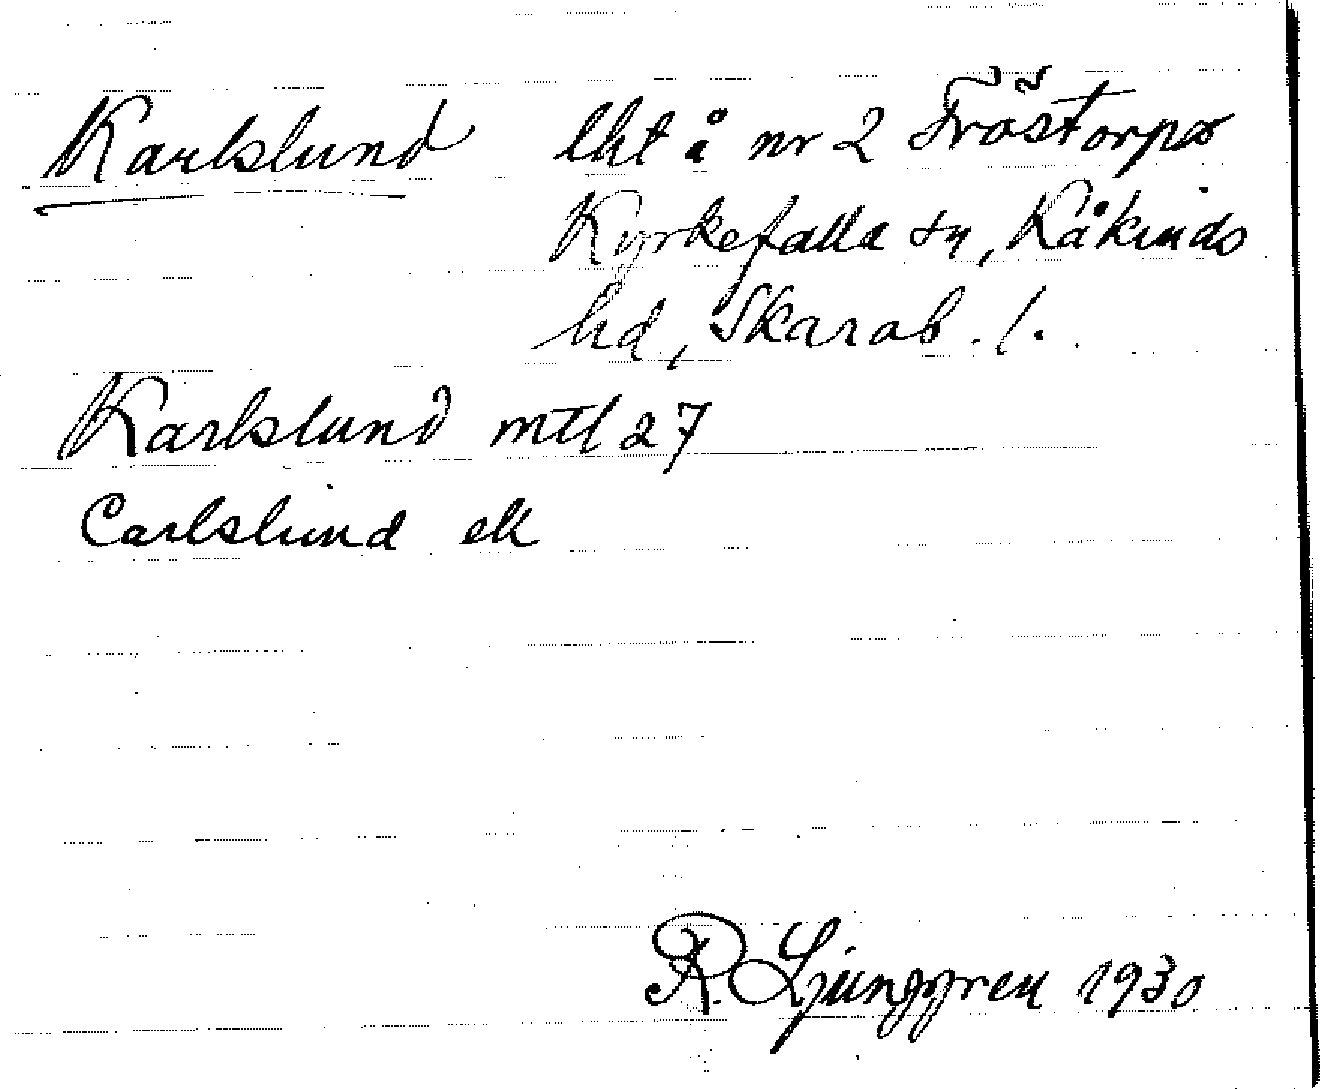 Karlslund lht å nr 2 Fröstorps
Kyrkefalla sn, Kåkinds
hd, Skarab. l.
Karlslund mtl 27
Carlslund ek
R. Ljunggren 1930